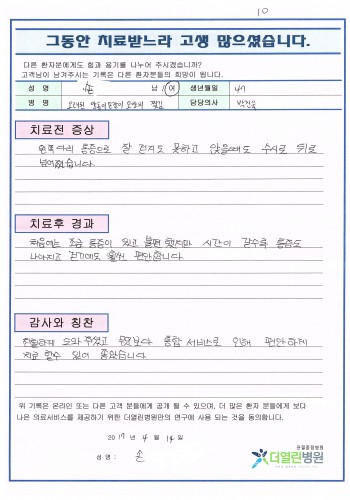 10
그동안 치료받느라 고생 많으셨습니다.
다른 환자분에게도 힘과 용기를 나누어 주시겠습니까?
고객님이 남겨주시는 기록은 다른 환자분들의 희망이 됩니다.
성 명 손 남 / 여 생년월일 47
병 명 오래된 담당의사
치료전 증상
왼쪽다리 통증으로 잘 걷지도 못하고 앉을때도 수시로 뒤로
넘어졌습니다.
치료후 경과
처음에는 조금 통증이 있고 불편했지만 시간이 갈수록 통증도
나아지고 걷기에도 훨씬 편안합니다.
감사와 칭찬
친절하게 도와주셨고 무엇보다 통합 서비스로 인해 편안하게
치료 할수 있어 좋았습니다.
위 기록은 온라인 또는 다른 고객 분들에게 공개 될 수 있으며, 더 많은 환자 분들에게 보다
나은 의료서비스를 제공하기 위한 더열린병원만의 연구에 사용 되는 것을 동의합니다.
2017 년 4 월 14 일
성 명 : 손
관절종합병원
더열린병원